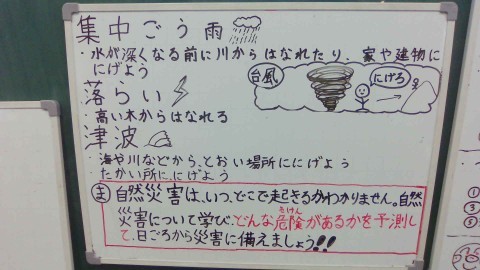 集中ごう雨
・水が深くなる前に川からはなれたり、家や建物ににげよう
台風
にげろ
落らい
・高い木からはなれる
津波
・海や川などから、とおい場所ににげよう
たかい所に、にげよう
ま 自然災害は、いつ、どこで起きるかわかりません。自然
災害について学び、どんな危険があるかを予測し
きけん
て、日ごろから災害に備えましょう!!